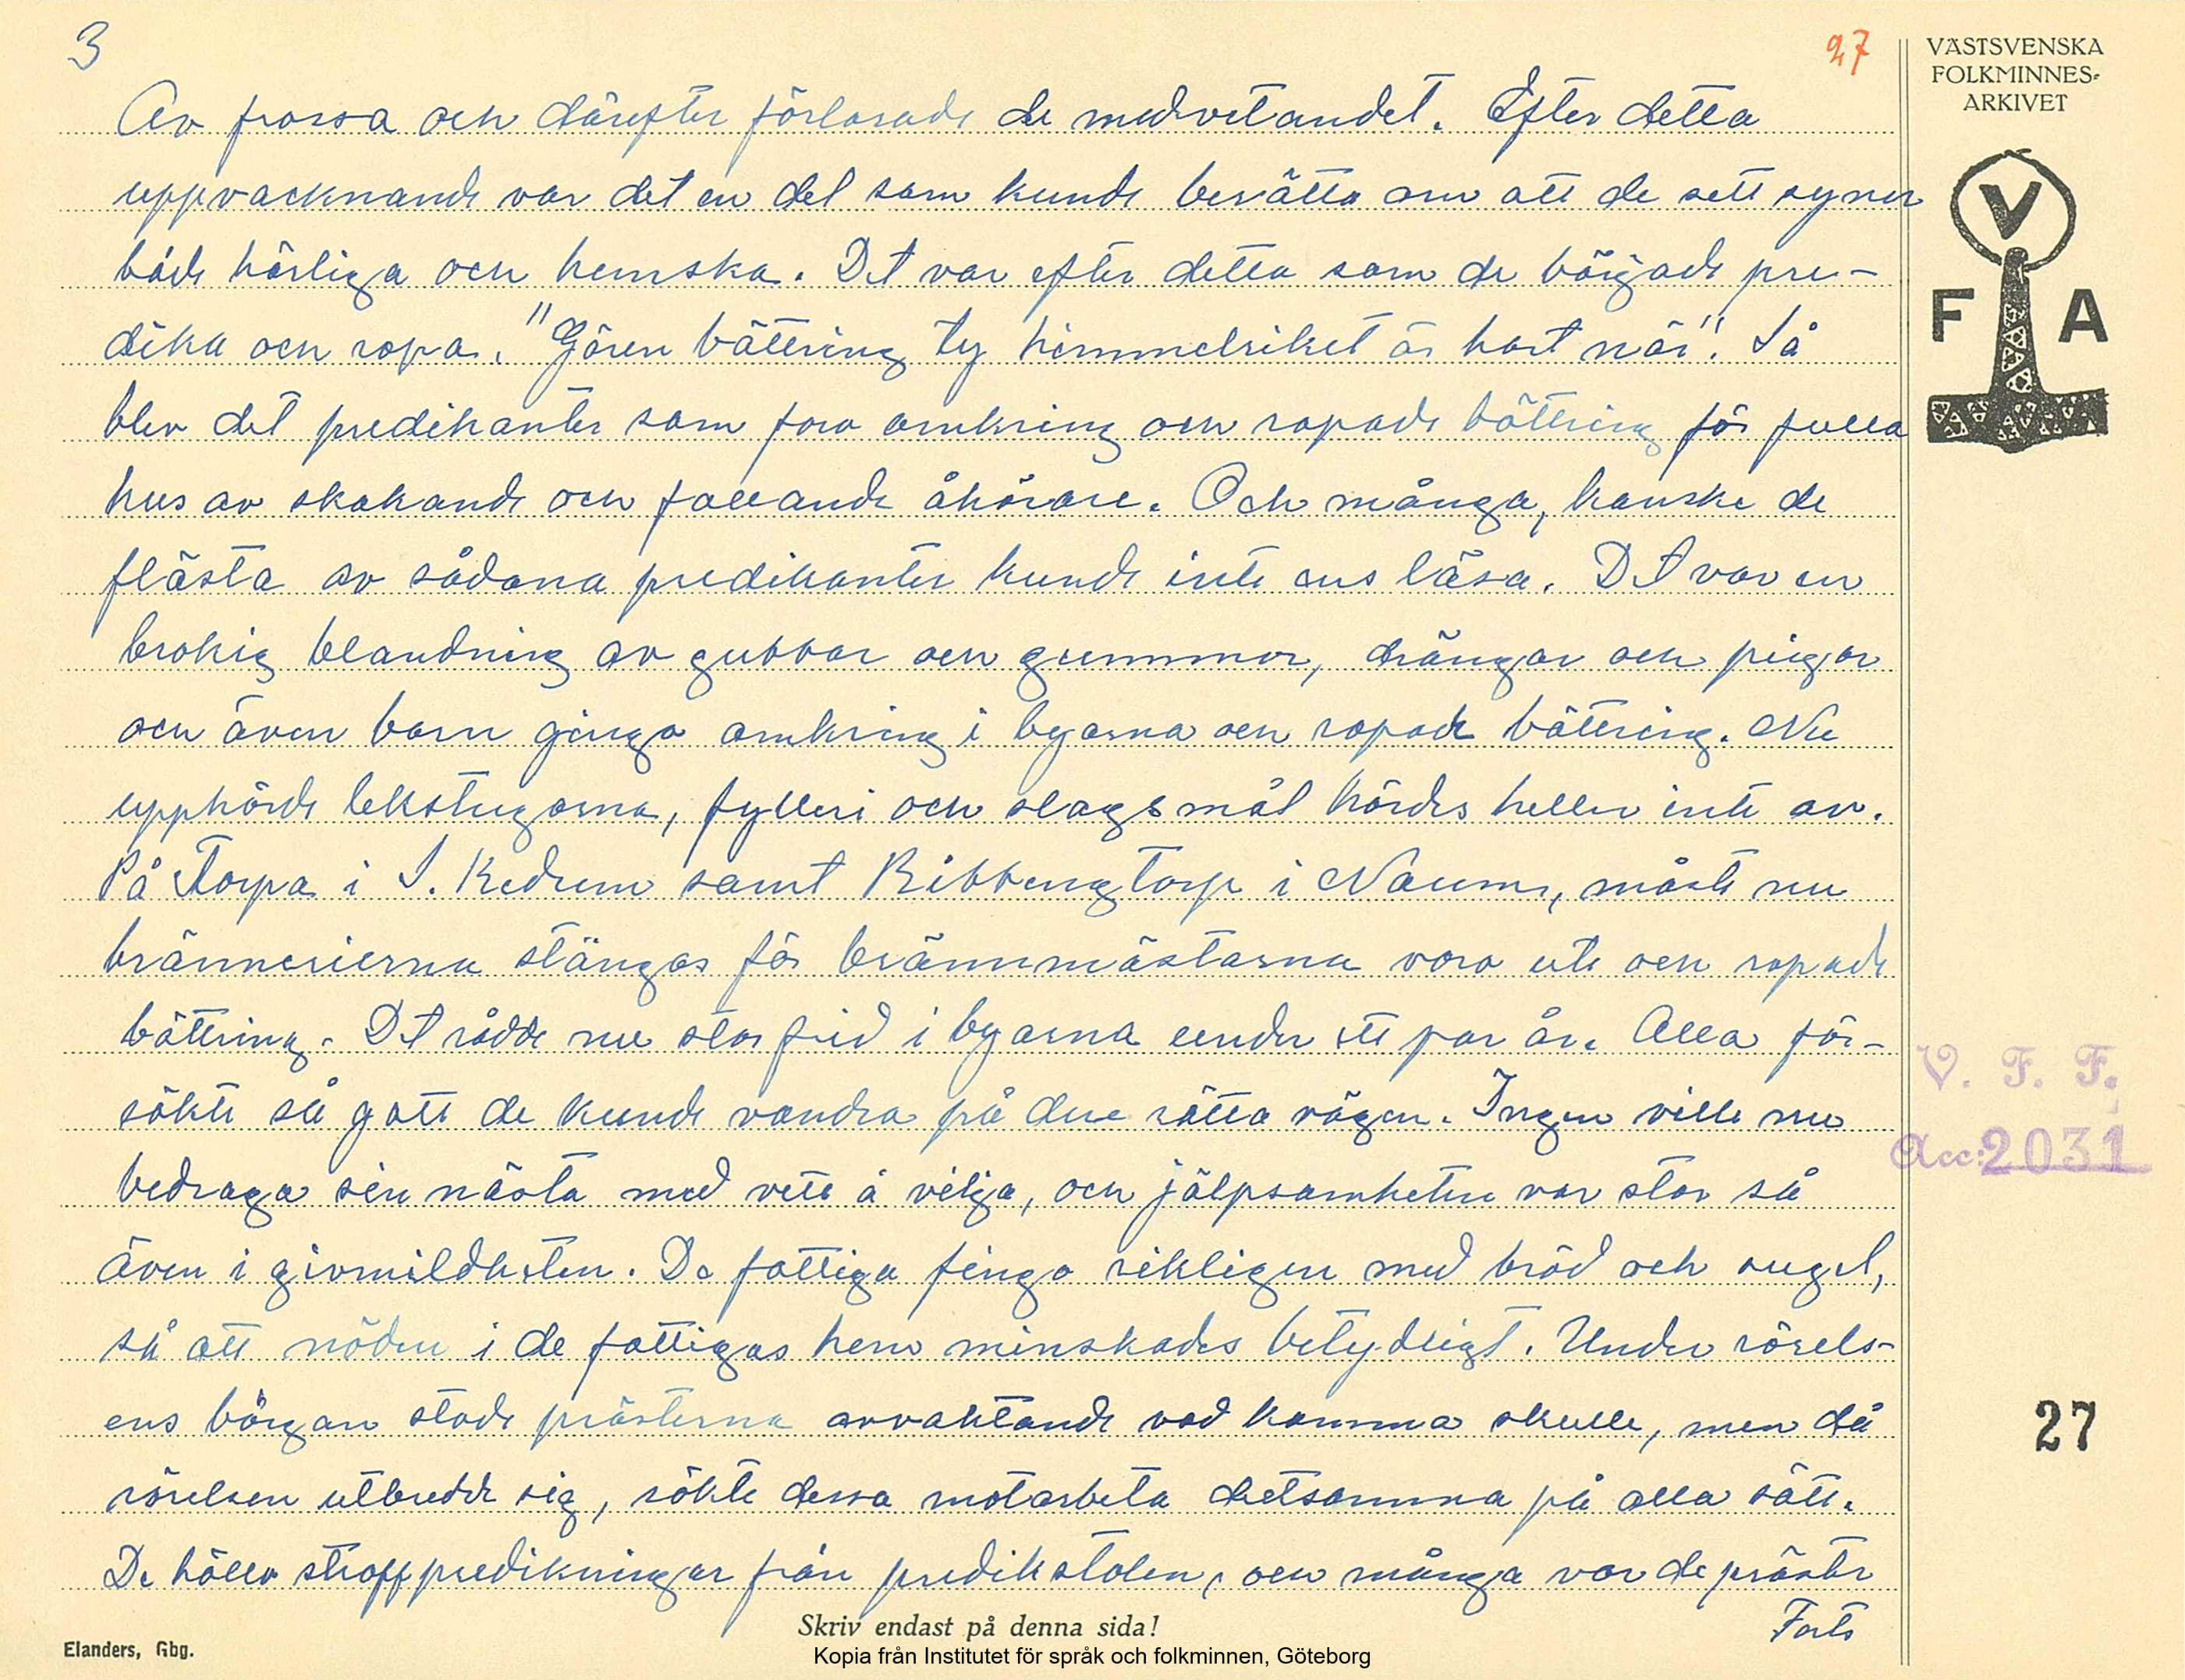 3
27
VÄSTSVENSKA
FOLKMINNES-
ARKIVET
Av frossa och därefter förlorade de medvetandet. Efter detta
uppvacknande var det en del som kunde berätta om att de sett syner
både härliga och hemska. Det var efter detta som de började pre-
dika och ropa. "Gören bättring ty himmelriket är hart när". Så
blev det predikanter som foro omkring och ropade bättring för fulla
hus av skakande och fallande åhörare. Och många, kanske de
flästa av sådana predikanter kunde inte ens läsa. Det var en
brokig blandning av gubbar och gummor, drängar och pigor
och även barn gingo omkring i byarna och ropade bättring. Nu
upphörde lekstugorna, fylleri och slagsmål hördes heller inte av.
På Torpa i S. Kedum samt Ribbingtorp i Naum, måste nu
brännerierna stängas för brännmästarna voro ute och ropade
bättring. Det rådde nu stor frid i byarna under ett par år. Alla för-
sökte så gott de kunde vandra på den rätta vägen. Ingen ville nu
bedraga sin nästa med vett å vilja, och jälpsamheten var stor så
även i givmildheten. De fattiga fingo rikligen med bröd och sugel,
så att nöden i de fattigas hem minskades betydligt. Under rörels-
ens början stode prästerna avvaktande vad komma skulle, men då
rörelsen utbredde sig, sökte dessa motarbeta detsamma på alla sätt.
De höllo straffpredikningar från predikstolen, och många var de präster
Forts
V
F A
V. F. F.
Acc: 2031
27
Skriv endast på denna sida!
Elanders, Gbg.
Kopia från Institutet för språk och folkminnen, Göteborg